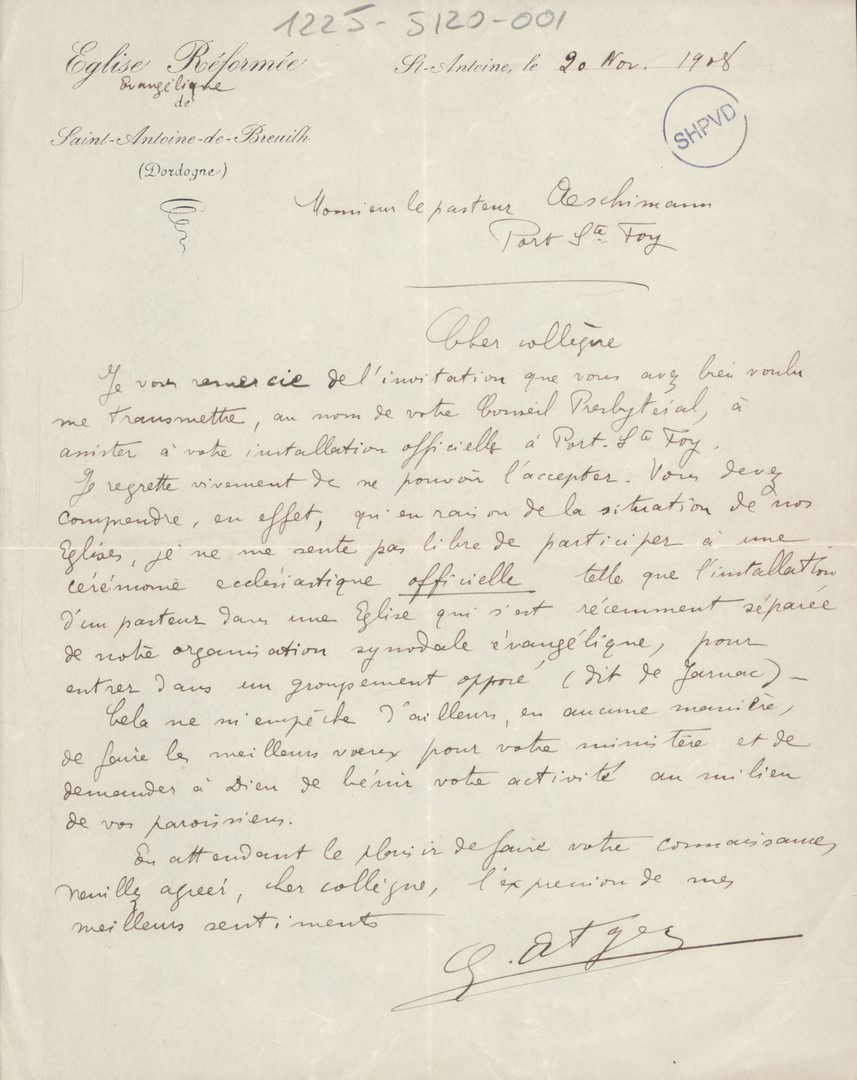 1225-5120-001
Eglise Réformée
Evangélique
de
Saint-Antoine-de-Breuilh
(Dordogne)
St-Antoine, le 20 Nov. 1908
SHPVD
Monsieur le pasteur Aeschimann
Port Ste Foy
Cher collègue
Je vous remercie de l'invitation que vous avez bien voulu
me transmettre, au nom de votre Conseil Presbytéral, à
assister à votre installation officielle à Port-Ste Foy.
Je regrette vivement de ne pouvoir l'accepter. Vous devez
comprendre, en effet, qu'en raison de la situation de nos
Eglises, je ne me sente pas libre de participer à une
cérémonie ecclésiastique officielle telle que l'installation
d'un pasteur dans une Eglise qui s'est récemment séparée
de notre organisation synodale évangélique, pour
entrer dans un groupement opposé (dit de Jarnac) -
Cela ne m'empêche d'ailleurs, en aucune manière,
de faire les meilleurs vœux pour votre ministère et de
demander à Dieu de bénir votre activité au milieu
de vos paroissiens.
En attendant le plaisir de faire votre connaissance,
veuillez agréer, cher collègue, l'expression de mes
meilleurs sentiments
G. Atger